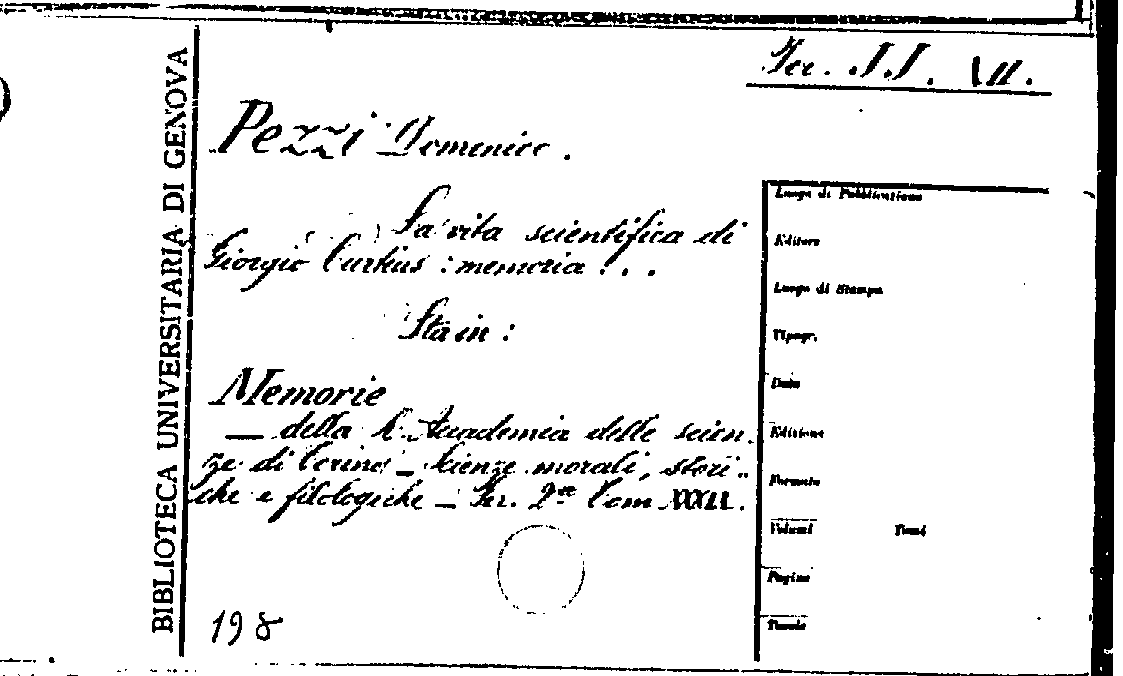 BIBLIOTECA UNIVERSITARIA DI GENOVA
Ser. I.I. VII.
Pezzi Domenico.
La vita scientifica di
Giorgio Curtius : memoria . . .
Sta in :
Memorie
— della R. Accademia delle scien-
ze di Torino — Scienze morali, stori-
che e filologiche — Ser. 2ª Tom.
198
Luogo di Pubblicazione
Editore
Luogo di Stampa
Tipogr.
Data
Edizione
Formato
Volumi Tomi
Pagine
Tavole